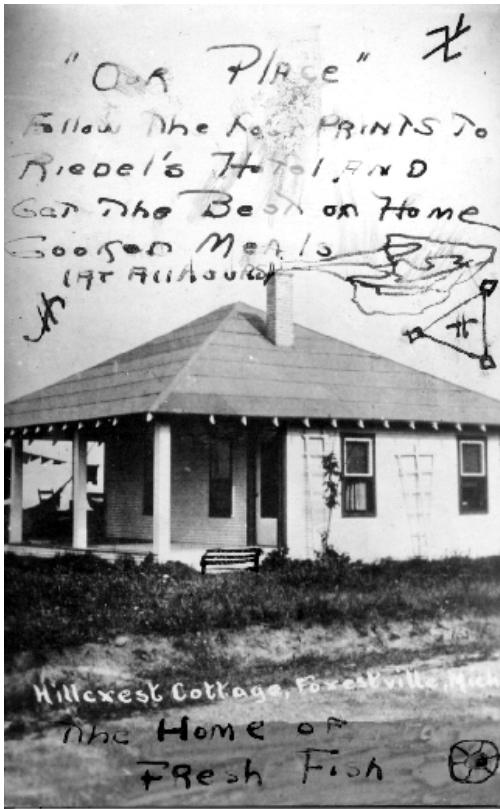 "Our Place"
Follow The Foot PRINTS To
Riedel's Hotel AND
Get The Best of Home
Cooked Meals
(At All Hours)
Hillcrest Cottage, Forestville, Mich
The Home of
Fresh Fish